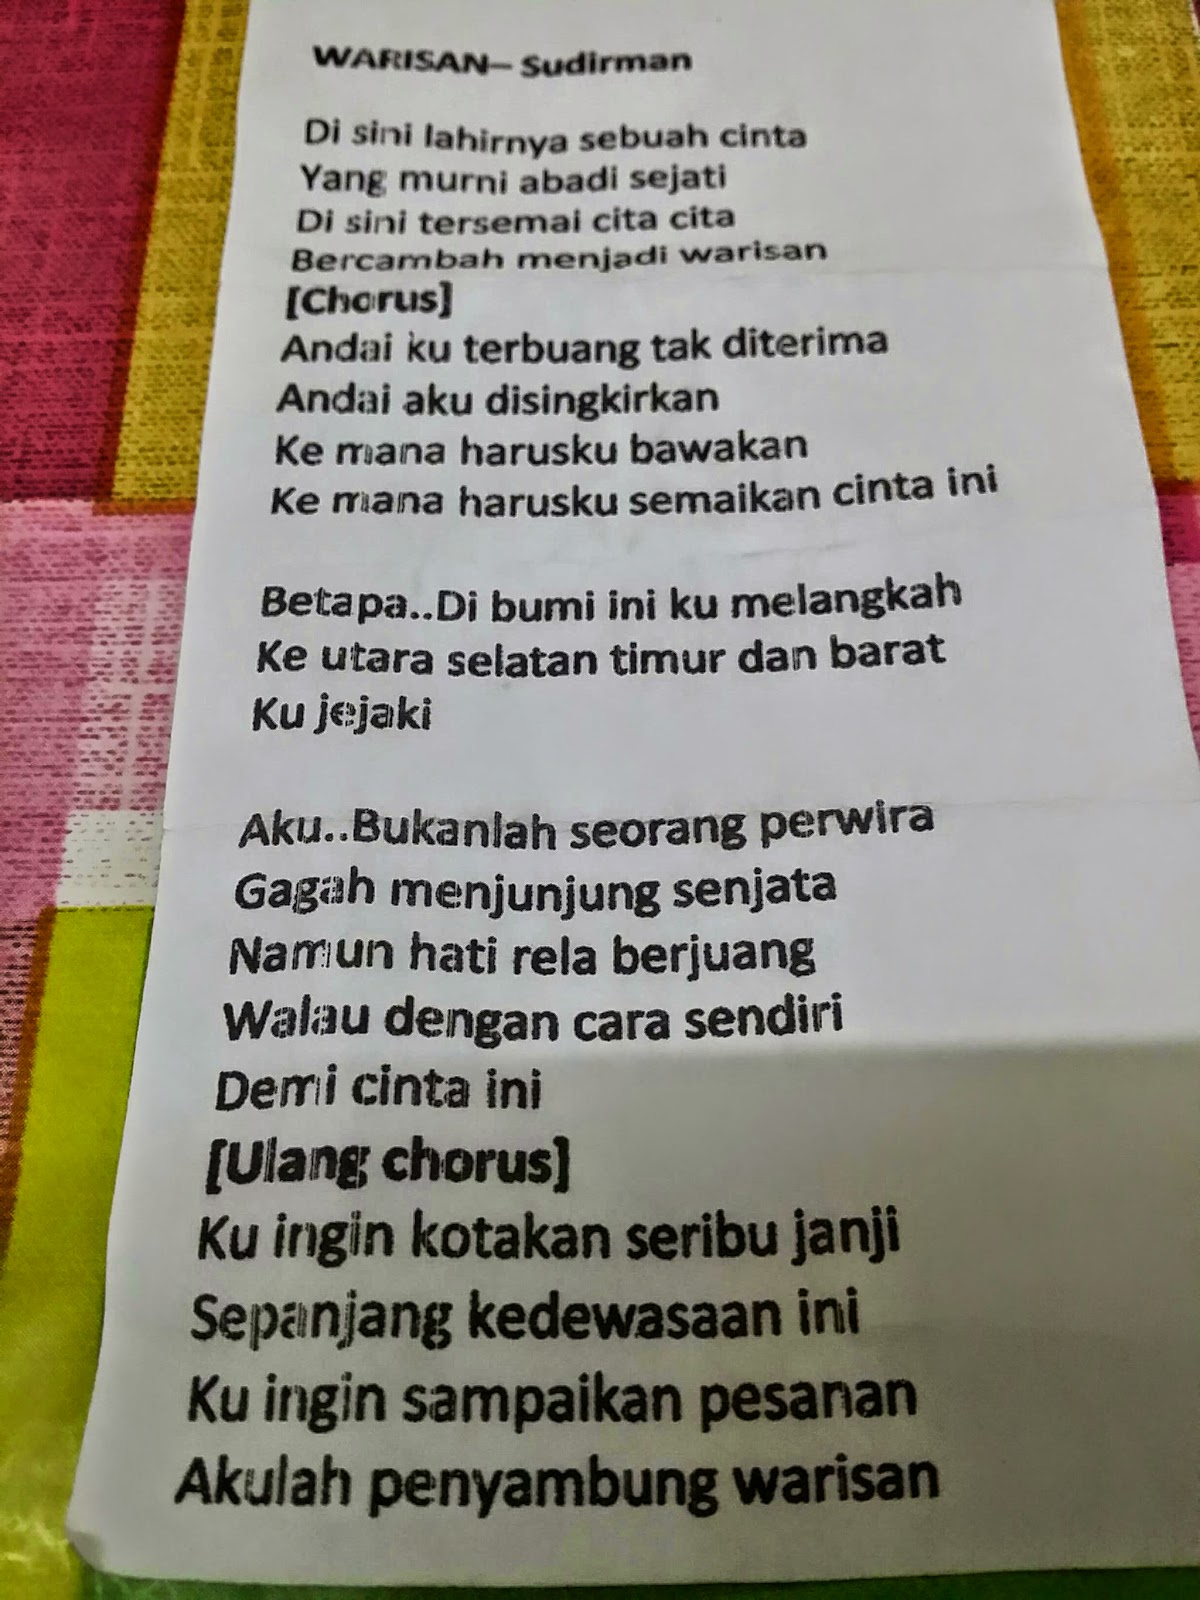 WARISAN– Sudirman
Di sini lahirnya sebuah cinta
Yang murni abadi sejati
Di sini tersemai cita cita
Bercambah menjadi warisan
[Chorus]
Andai ku terbuang tak diterima
Andai aku disingkirkan
Ke mana harusku bawakan
Ke mana harusku semaikan cinta ini
Betapa..Di bumi ini ku melangkah
Ke utara selatan timur dan barat
Ku jejaki
Aku..Bukanlah seorang perwira
Gagah menjunjung senjata
Namun hati rela berjuang
Walau dengan cara sendiri
Demi cinta ini
[Ulang chorus]
Ku ingin kotakan seribu janji
Sepanjang kedewasaan ini
Ku ingin sampaikan pesanan
Akulah penyambung warisan